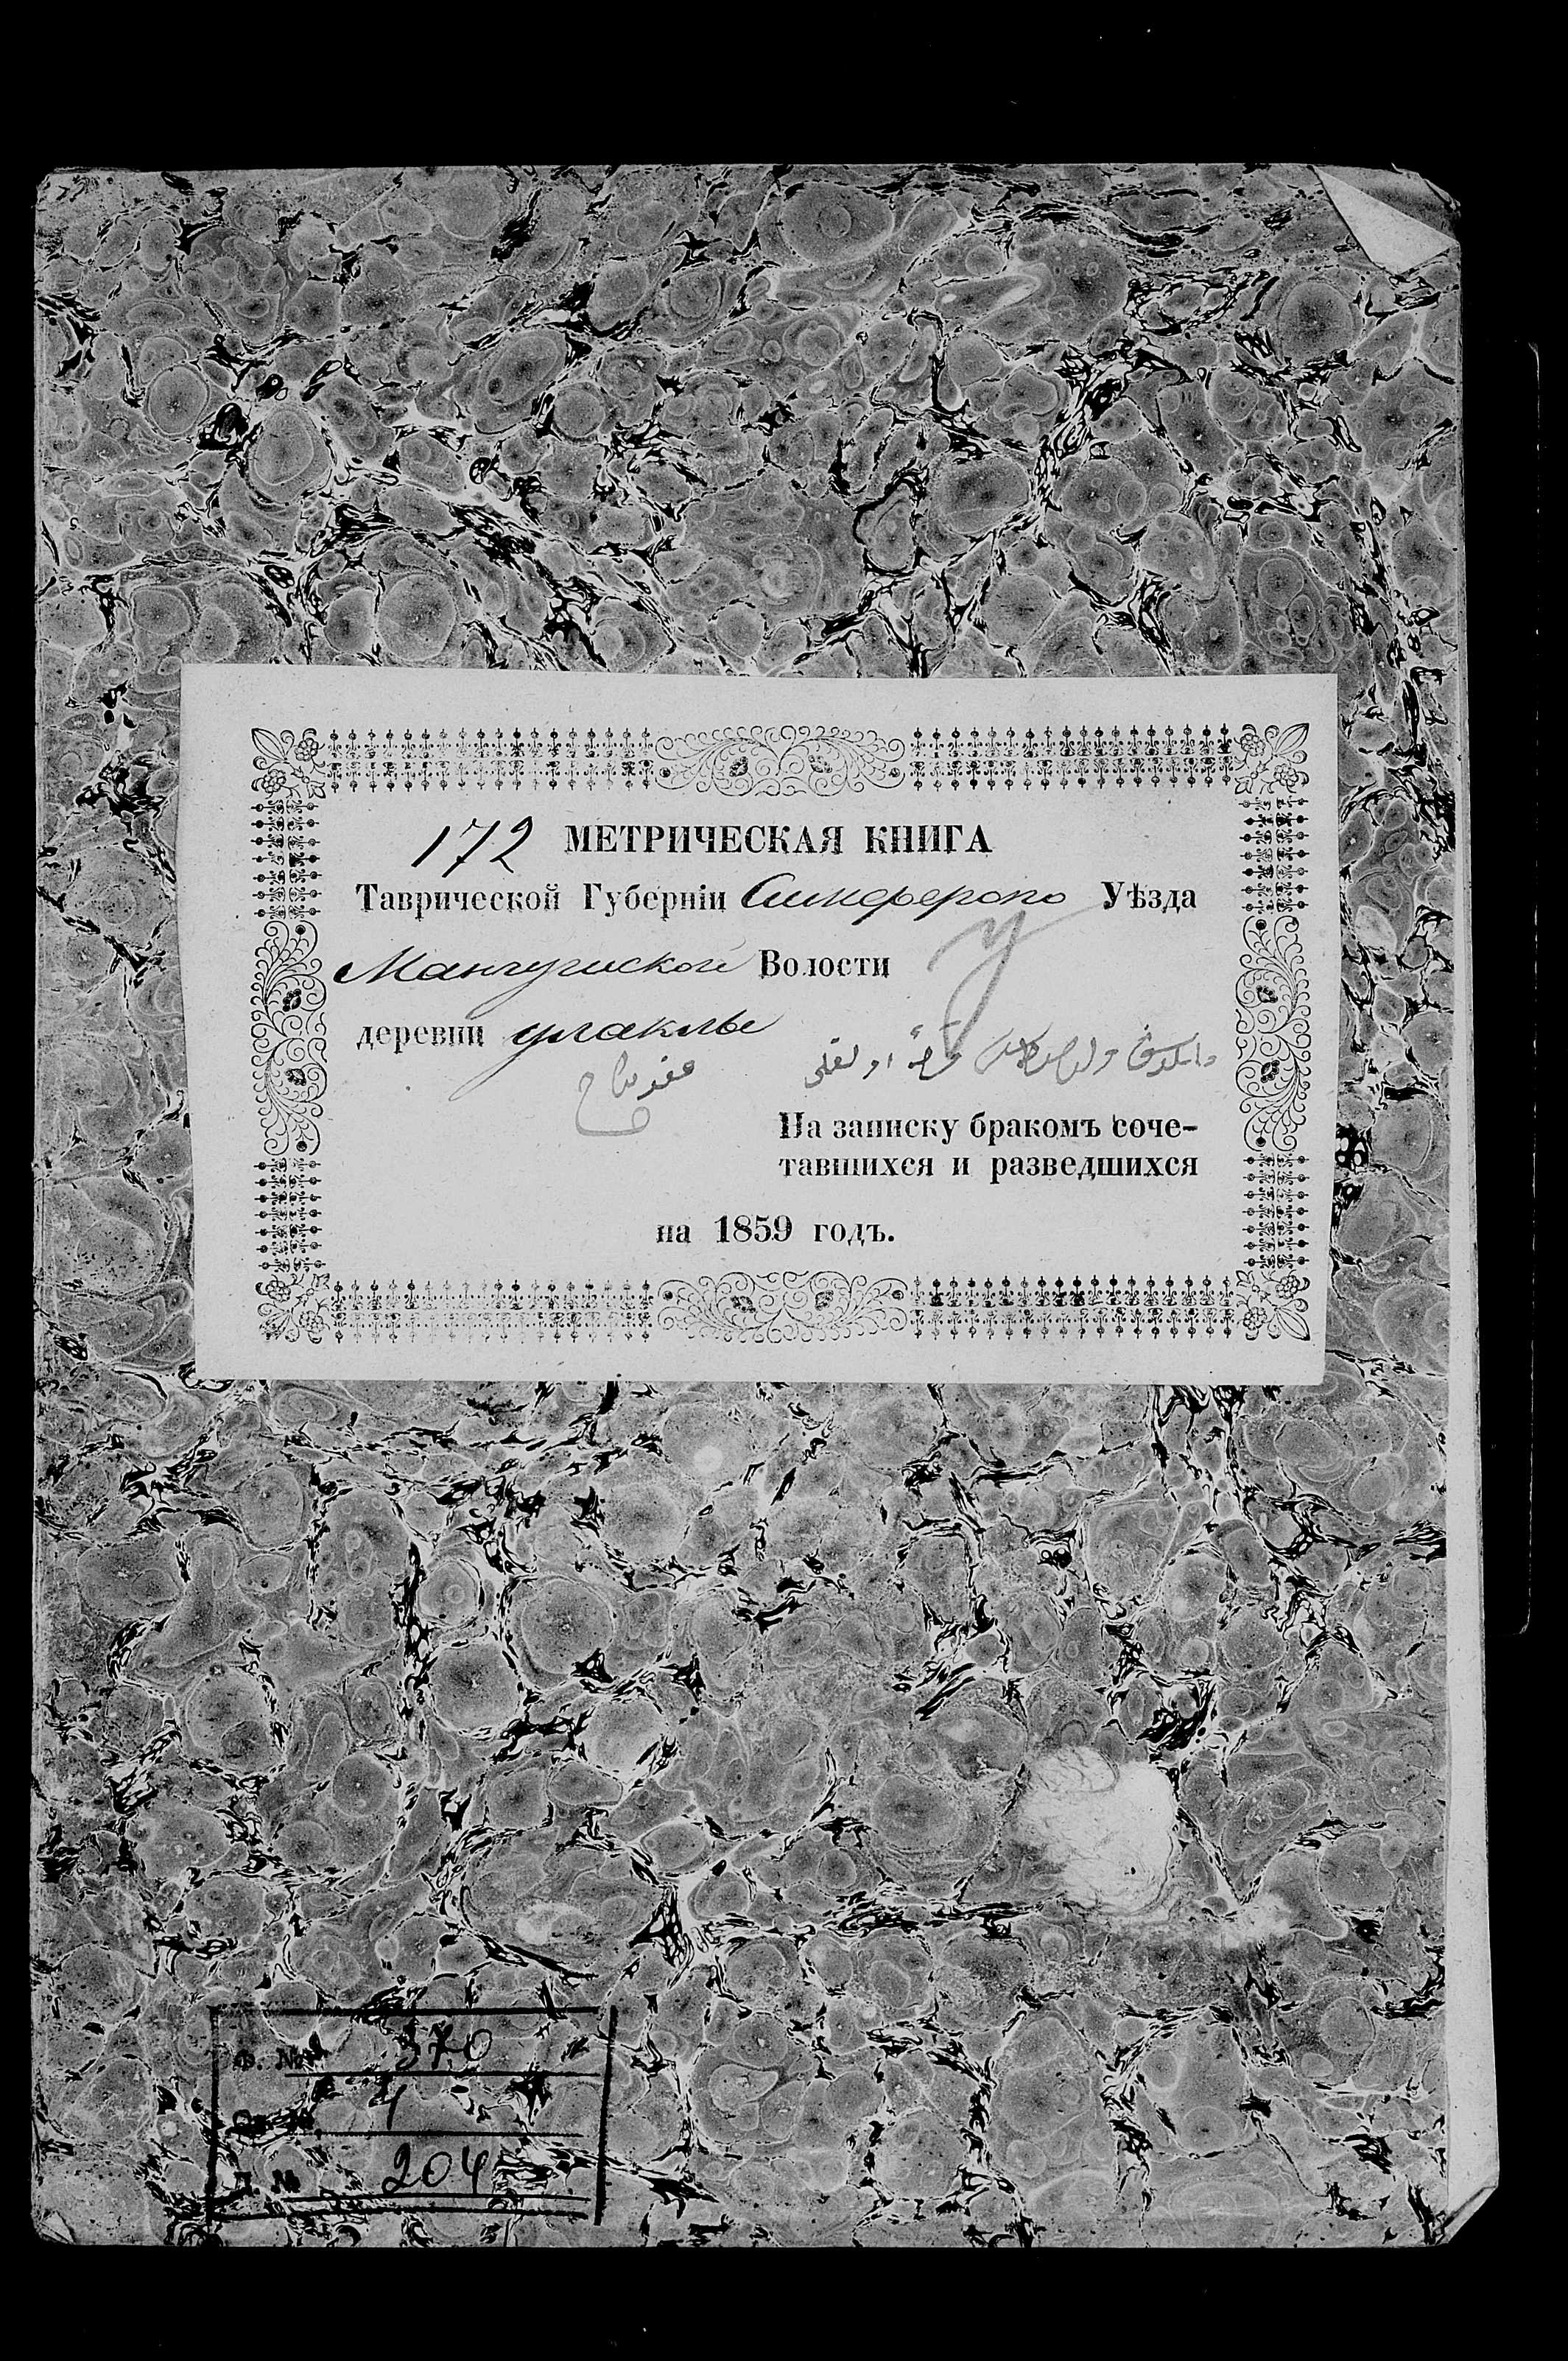 172 МЕТРИЧЕСКАЯ КНИГА
Таврической Губерніи Симферопо Уѣзда
Мангушской Волости
У
деревни улаклы
قریهٔ اولقلی
عقد نکاح
На записку бракомъ соче-
тавшихся и разведшихся
на 1859 годъ.
Ф. № 370
1
Д. № 204